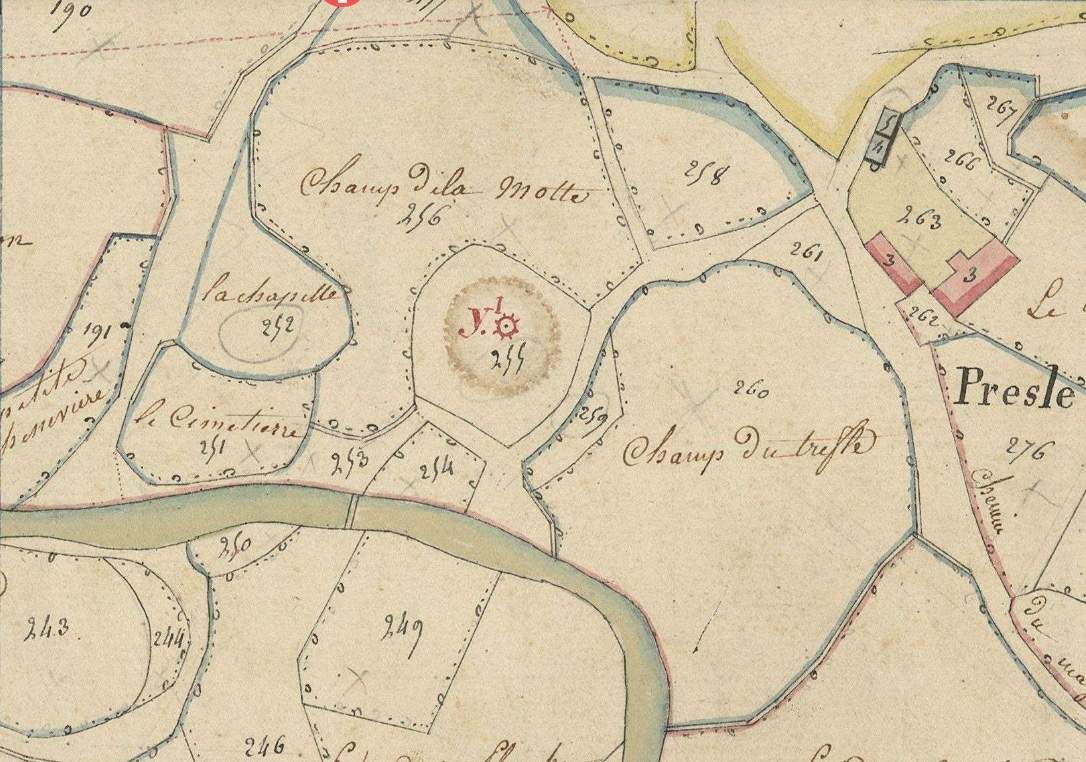 190
Champ de la Motte
256
258
267
266
5
4
263
261
3
3
262
Le
la chapelle
252
y.1
255
191
petite
le Cimetierre
251
253
254
259
260
Champ du trefle
Presle
276
Chemin
du
250
243
244
249
246